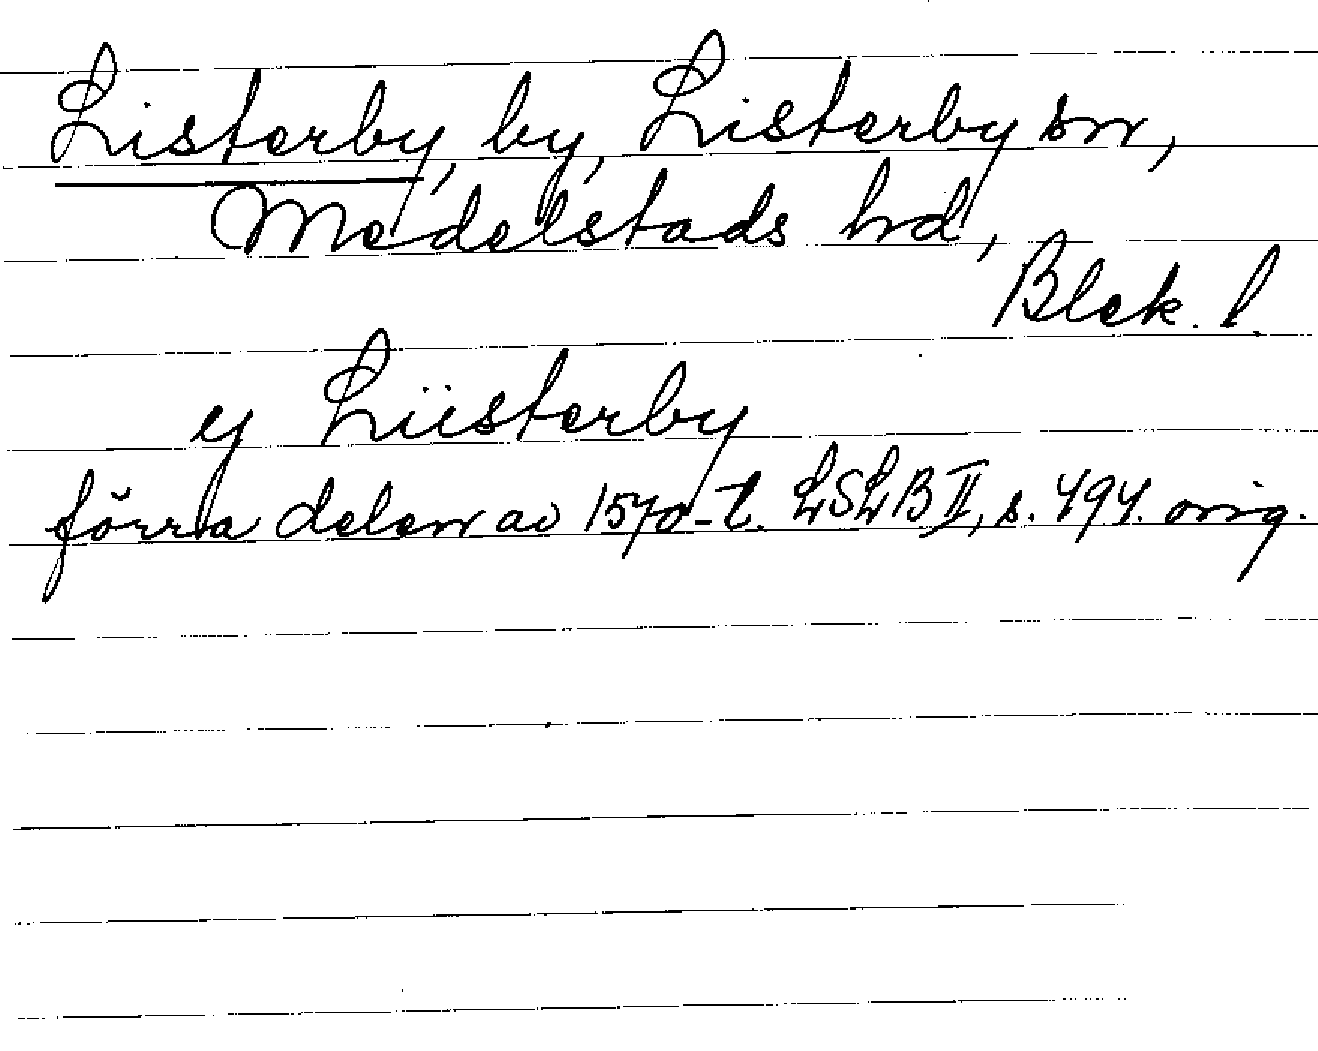 Listerby, by, Listerby sn,
Medelstads hd,
Blek. l.
ij Liisterby
förra delen av 1570-t. LSLB II, s. 494. orig.